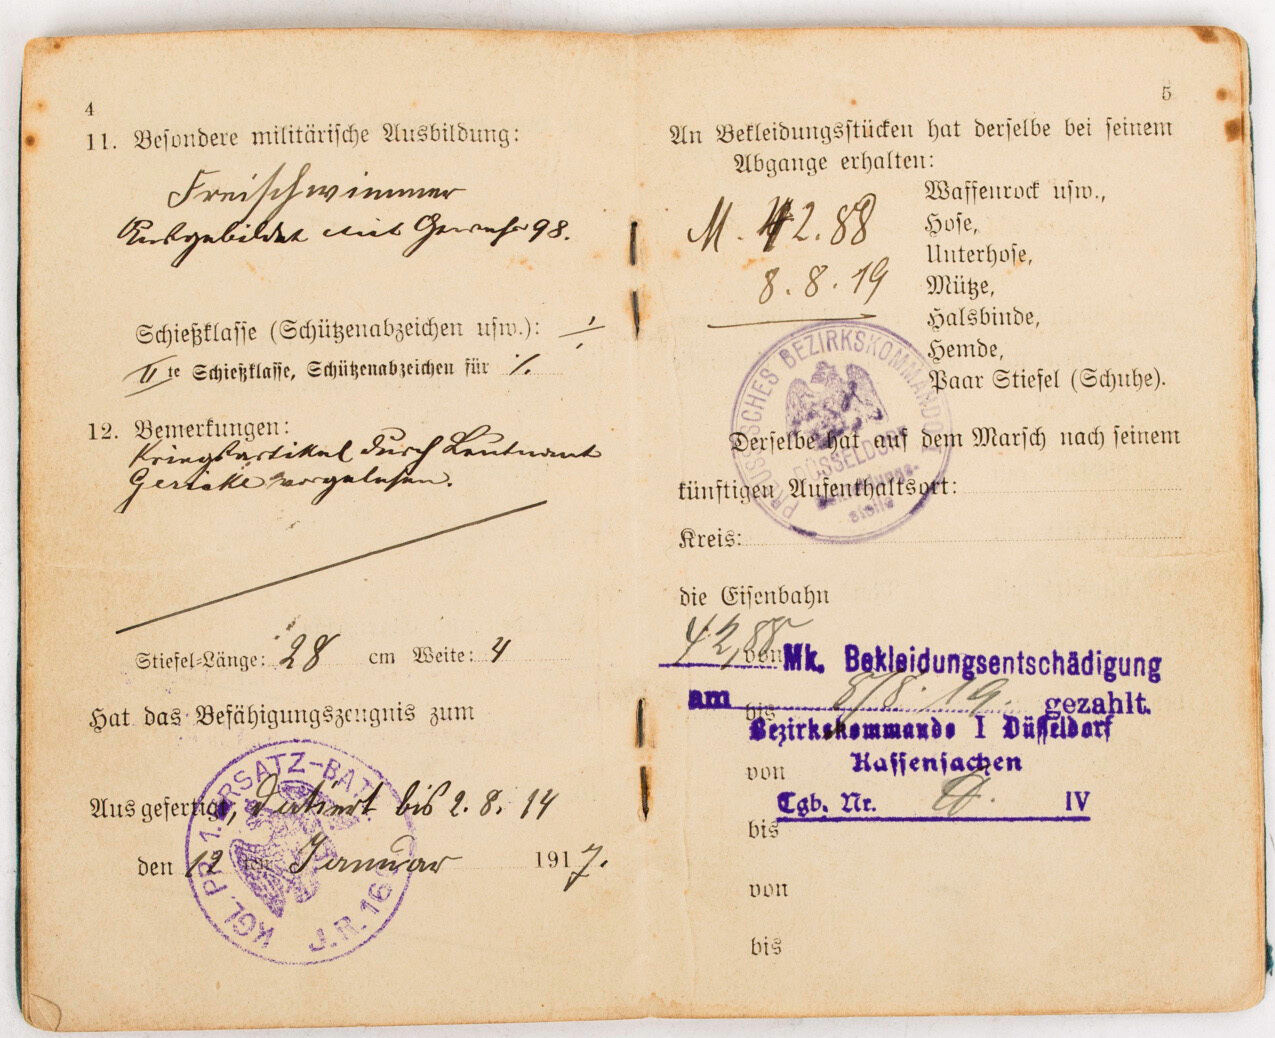 4
11. Besondere militärische Ausbildung:
Freischwimmer
Ausgebildet mit Gewehr 98.
Schießklasse (Schützenabzeichen usw.): /
II te Schießklasse, Schützenabzeichen für /.
12. Bemerkungen:
Kriegsartikel durch Leutnant
Gericke vorgelesen.
Stiefel=Länge: 28 cm Weite: 4
Hat das Befähigungszeugnis zum
Ausgefertigt, datiert bis 2.8.14
den 12 ten Januar 1917.
KGL. PR. 1. ERSATZ-BATL.
J.R. 16
5
An Bekleidungsstücken hat derselbe bei seinem
Abgange erhalten:
M. 42.88
8.8.19
Waffenrock usw.,
Hose,
Unterhose,
Mütze,
Halsbinde,
Hemde,
Paar Stiefel (Schuhe).
PREUSSISCHES BEZIRKSKOMMANDO I
DÜSSELDORF
stelle
Derselbe hat auf dem Marsch nach seinem
künftigen Aufenthaltsort:
Kreis:
die Eisenbahn
42,88 von Mk. Bekleidungsentschädigung
am 8/8. 19. gezahlt.
bis
Bezirkskommando I Düsseldorf
Kassensachen
von
Tgb. Nr. IV
bis
von
bis